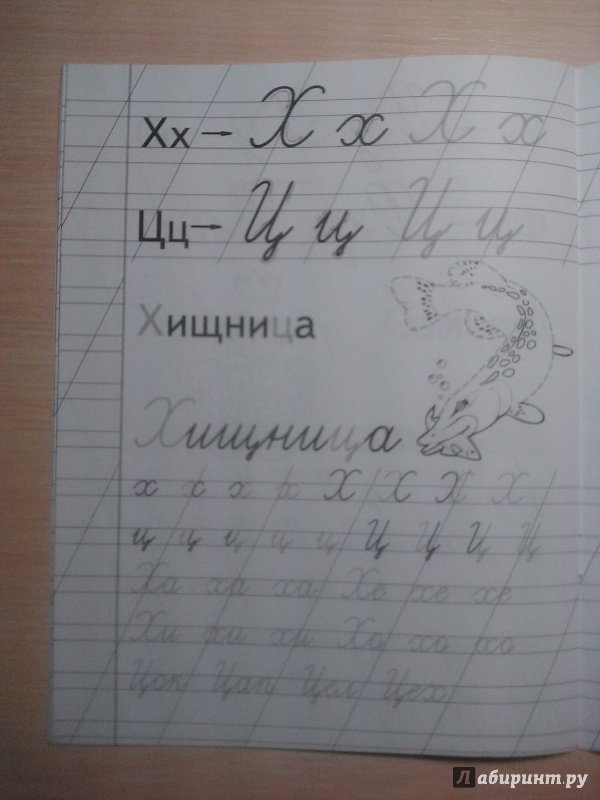 Хх → Х х Х х
Цц → Ц ц Ц ц
Хищница
Хищница
х х х х Х Х Х Х
ц ц ц ц ц Ц Ц Ц Ц
Ха ха ха Хе хе хе
Хи хи хи Хо хо хо
Цап Цел Цех
Лабиринт.ру